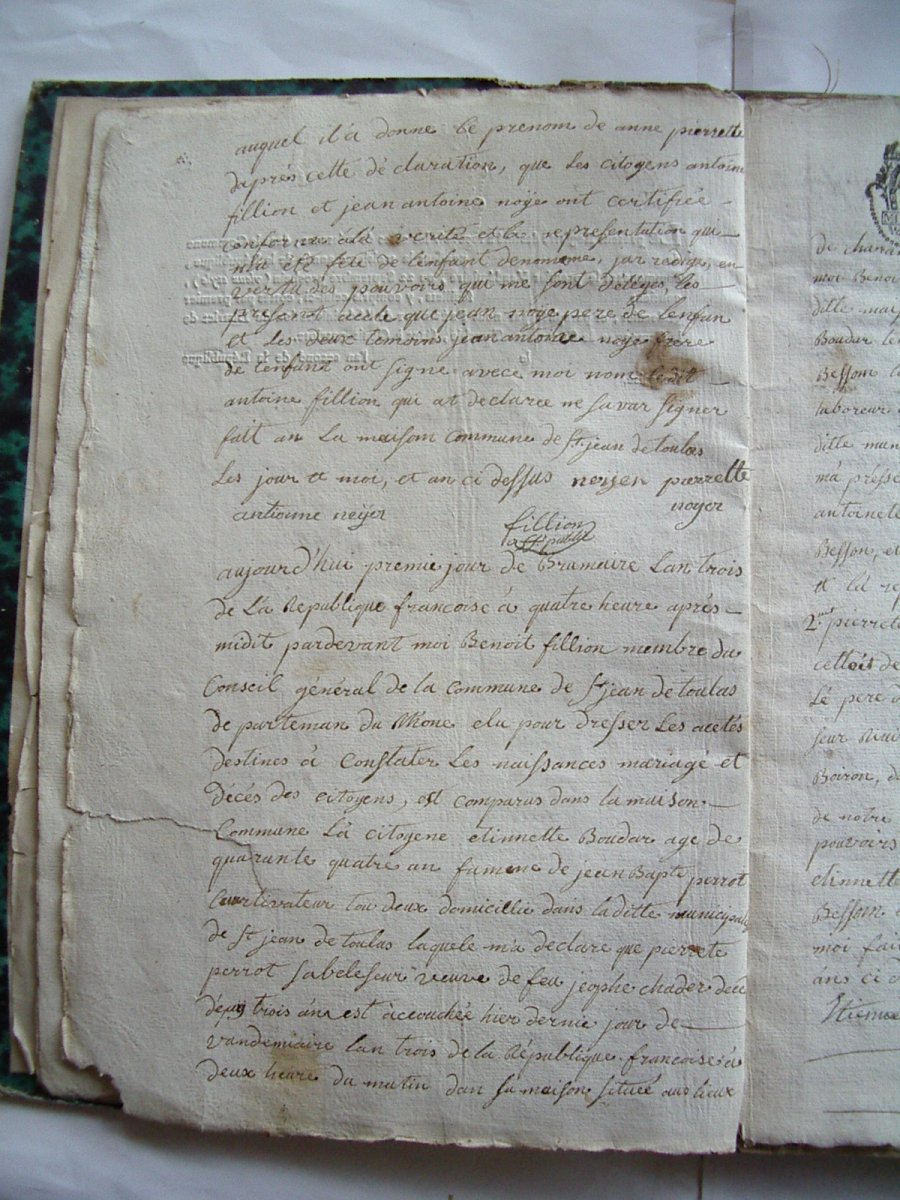 auquel il a donne le prenom de anne pierrette
daprés cette dé claration, que les citoyens antoine
fillion et jean antoine noÿe ont certifiée
conforme a la verité et la representation qui
ma été fete de lenfant denomme, jai redigé, en
vertu des pouvoirs qui me sont délegés, les
présant acete que jean noye pere de lenfan
et les deux temoins jean antoine noye frere
de lenfant ont signe avece moi nom le dit
antoine fillion qui at declaree ne savar signer
fait an la maisom commune de St jean de toulas
les jour et moi, et an ci dessus noyen pierrette
antionne neyer noyer
fillion
off. public
aujourd'hui premie jour de Brumaire lan trois
de la Republique francoise a quatre heure aprés
midit pardevant moi Benoit fillion membre du
Conseil général de la commune de St jean de toulas
de parteman du Rhone elu pour dresser les acetés
destines á constater les naissances máriagé et
décés des citoyens, est comparus dans la maison
Commune la citoyene etinnette Boudar age de
quarante quatre an famene de jean Bapte perrot
Curtivateur tou deux domicillie dans laditte municipali
de St jean de toulas laquele ma declare que pierrete
perrot sabeleseur veuve de feu jeophe chader decé
dépuis trois áns est àccouchée hier dernie jour de
vandemiaire lan trois de la République francoise a
deux heure du matin dan sa maison situeé aus lieux
de chan
moi Benoi
ditte mai
Boudar le
Bessom la
laboreur
ditte mun
má présse
antoinete
Besson, et
et la rep
2ment pierrete
cettois de
Lé pere
seur
Boiron, d
de notre
pouvoirs
etinnette
Bessom
moi fai
áns ci d
Etienne